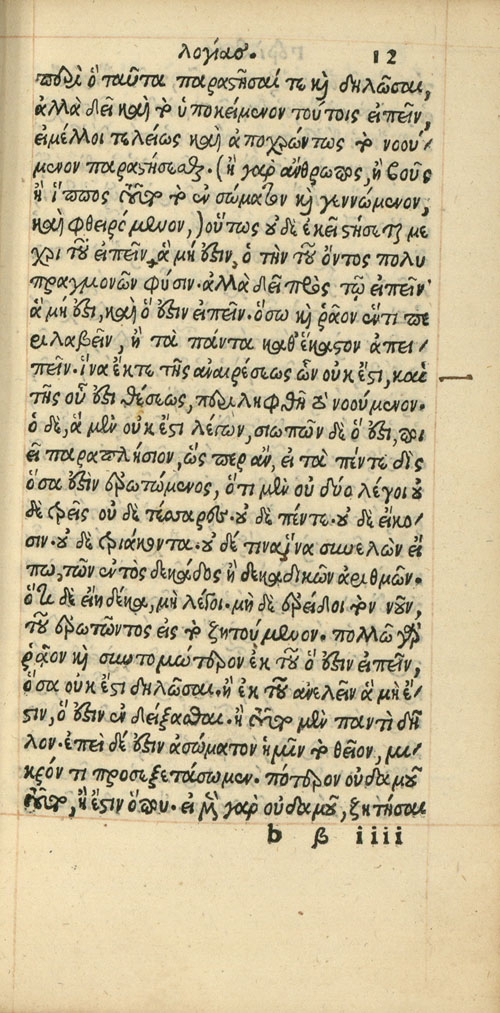 λογίας. 12
περὶ ὃ ταῦτα παραστῆσαί τε καὶ δηλῶσαι,
ἀλλὰ δεῖ καὶ τὸ ὑποκείμενον τούτοις εἰπεῖν,
εἰ μέλλοι τελείως καὶ ἀποχρώντως τὸ νοού-
μενον παραστήσεσθαι. (ἢ γὰρ ἄνθρωπος, ἢ βοῦς
ἢ ἵππος τοῦτο τὸ ἐν σώματον καὶ γεννώμενον,
καὶ φθειρόμενον,) οὕτως οὐδὲ ἐκεῖ στήσεται με
χρι τοῦ εἰπεῖν, ἃ μή ἐστιν, ὁ τὴν τοῦ ὄντος πολυ
πραγμονῶν φύσιν. ἀλλὰ δεῖ πρὸς τῷ εἰπεῖν
ἃ μή ἐστι, καὶ ὅ ἐστιν εἰπεῖν. ὅσω καὶ ῥᾷον ἕν τι πε
ριλαβεῖν, ἢ τὰ πάντα καθ' ἕκαστον ἀπει-
πεῖν. ἵνα ἔκ τε τῆς ἀναιρέσεως ὧν οὐκ ἔστι, καὶ
τῆς οὗ ἐστι θέσεως, περιληφθῇ τὸ νοούμενον.
ὁ δὲ, ἃ μὲν οὐκ ἔστι λέγων, σιωπῶν δὲ ὅ ἐστι, ποι
εῖ παραπλήσιον, ὥς περ ἂν, εἰ τὰ πέντε δὶς
ὅσα ἐστὶν ἐρωτώμενος, ὅτι μὲν οὐ δύο λέγοι οὐ
δὲ τρεῖς οὐ δὲ τέσσαρες. οὐ δὲ πέντε. οὐ δὲ εἴκο-
σιν. οὐ δὲ τριάκοντα. οὐ δέ τινα ἵνα συνελὼν εἴ
πω, τῶν ἐντὸς δεκάδος ἢ δεκαδικῶν ἀριθμῶν.
ὅτι δὲ εἴη δέκα, μὴ λέγοι. μὴ δὲ ἐρείδοι τὸν νοῦν,
τοῦ ἐρωτῶντος εἰς τὸ ζητούμενον. πολλῷ γὰρ
ῥᾷον καὶ συντομώτερον ἐκ τοῦ ὅ ἐστιν εἰπεῖν,
ὅσα οὐκ ἔστι δηλῶσαι. ἢ ἐκ τοῦ ἀνελεῖν ἃ μὴ ἔ-
στιν, ὅ ἐστιν ἐν δείξασθαι. ἢ τοῦτο μὲν παντὶ δῆ
λον. ἐπεὶ δέ ἐστιν ἀσώματον ἡμῖν τὸ θεῖον, μι-
κρόν τι προσεξετάσωμεν. πότερον οὐδαμοῦ
τοῦτο, ἢ ἔστιν ὅπου. εἰ μὲν γὰρ οὐδαμοῦ, ζητήσαι
b β iiii